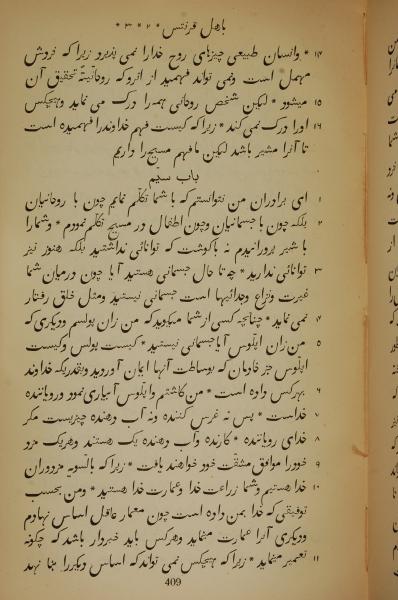 باهل قرنتس * ۲ * ۳ *
۱۴ * وانسان طبیعی چیزهای روح خدارا نمی پذیرد زیرا که نزدش
مهمل است ونمی تواند فهمید از انرو که روحانیّته تحقیق آن
۱۵ میشود * لیکن شخص روحانی همه را درک می نماید وهیچکس
۱۶ اورا درک نمی کند * زیرا که کیست فهم خداوندرا فهمیده است
تا آنرا مشیر باشد لیکن ما فهم مسیح را داریم
باب سیّم
۱ ای برادران من نتوانستم که با شما تکلّم نمایم چون با روحانیان
۲ بلکه چون با جسمانیان وچون اطفال در مسیح تکلّم نمودم * وشمارا
با شیر پرورانیدم نه با گوشت که توانائی نداشتید بلکه هنوز نیز
۳ توانائی ندارید * چه تا حال جسمانی هستید آیا چون درمیان شما
غیرت ونزاع وجدائیها است جسمانی نیستید ومثل خلق رفتار
۴ نمی نماید * چنانچه کسی از شما میگوید که من زان پولسم ودیگری که
۵ من زان اپلّوس آیا جسمانی نیستید * کیست پولس وکیست
اپلّوس جز خادمان که بوساطت آنها ایمان آوردید وبقدریکه خداوند
۶ بهرکس داده است * من کاشتم واپلّوس آبیاری نمود ورویاننده
۷ خداست * پس نه غرس کننده ونه آب دهنده چیزیست مگر
۸ خدای رویاننده * کارنده وآب دهنده یک هستند وهریک مزد
۹ خودرا موافق مشقّت خود خواهند یافت * زیرا که بالسویه مزدوران
۱۰ خدا هستیم وشما زراعت خدا وعمارت خدا هستید * ومن بحسب
توفیقی که خدا بمن داده است چون معمار عاقل اساس نهادم
ودیگری آنرا عمارت مینماید وهرکس باید خبردار باشد که چگونه
۱۱ تعمیر مینماید * زیرا که هیچکس نمی تواند که اساس دیگررا بنا نهد
409